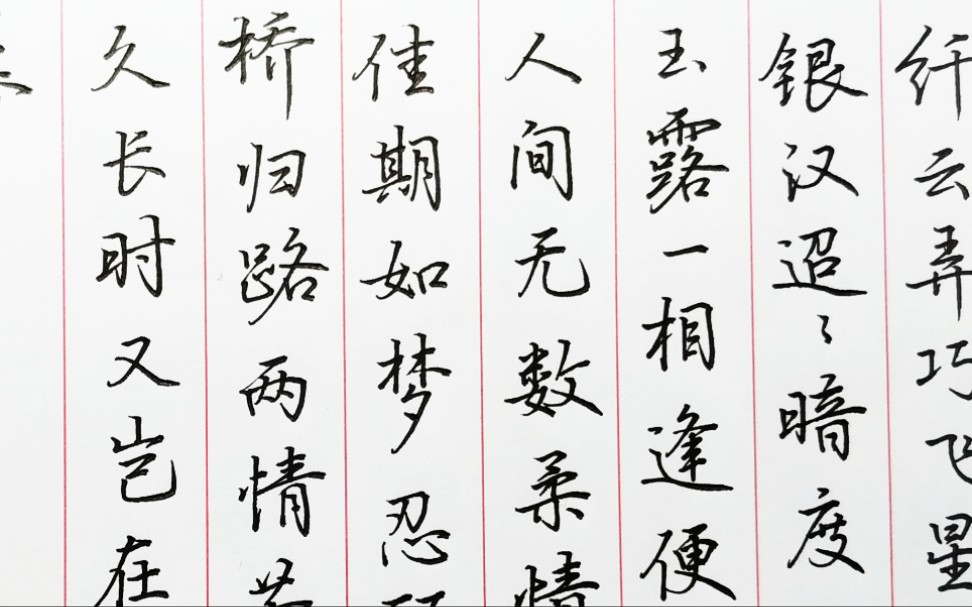 纤云弄巧飞星
银汉迢〻暗度
玉露一相逢便
人间无数柔情
佳期如梦忍
桥归路两情若
久长时又岂在